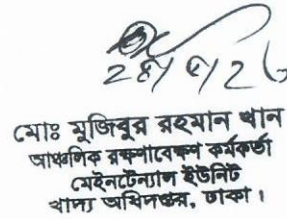 মোঃ মুজিবুর রহমান খান
আঞ্চলিক রক্ষণাবেক্ষণ কর্মকর্তা
মেইনটেন্যান্স ইউনিট
খাদ্য অধিদপ্তর, ঢাকা।